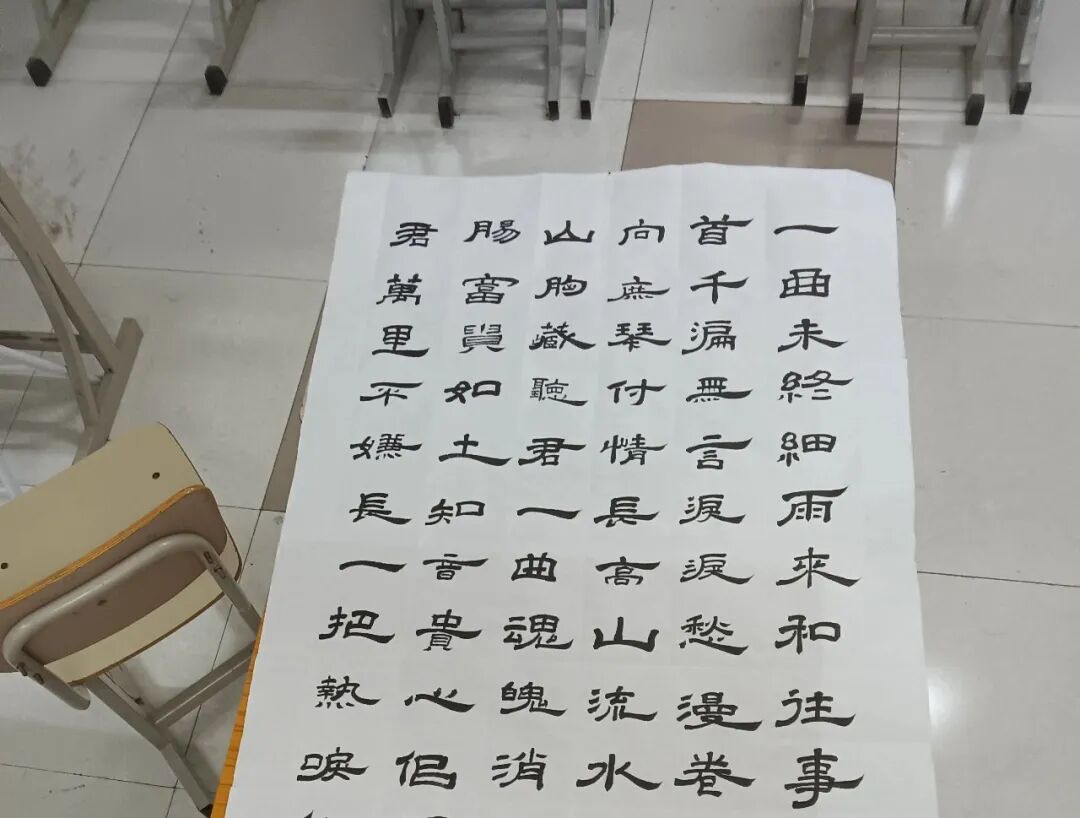 一曲未終細雨來和往事
首千遍無言淚淚愁漫卷
向庶琴付情長高山流水
山胸藏聽君一曲魂魄消
腸富貴如土知音貴心侶
君萬里不嫌長一把熱淚